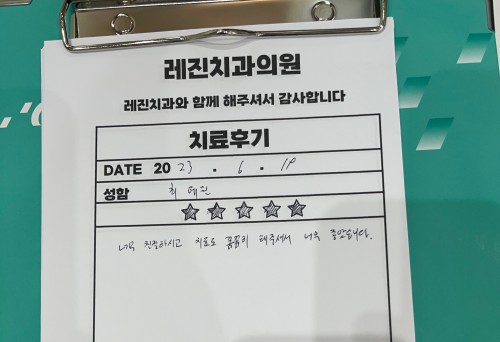 레진치과의원
레진치과와 함께 해주셔서 감사합니다
치료후기
DATE 2023. 6. 19
성함 최예진
너무 친절하시고 치료도 꼼꼼히 해주셔서 너무 좋았습니다.